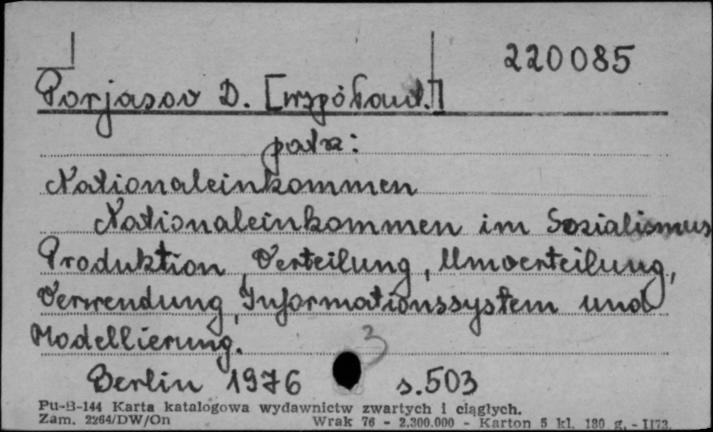 220085
Porjasov D. [współaut.]
patrz:
Nationaleinkommen
Nationaleinkommen im Sozialismus
Produktion, Verteilung, Umverteilung,
Verwendung, Informationssystem und
Modellierung.
3
Berlin 1976 s. 503
Pu-B-144 Karta katalogowa wydawnictw zwartych i ciągłych.
Zam. 2264/DW/On Wrak 76 - 2.300.000 - Karton 5 kl. 180 g. - 1173.